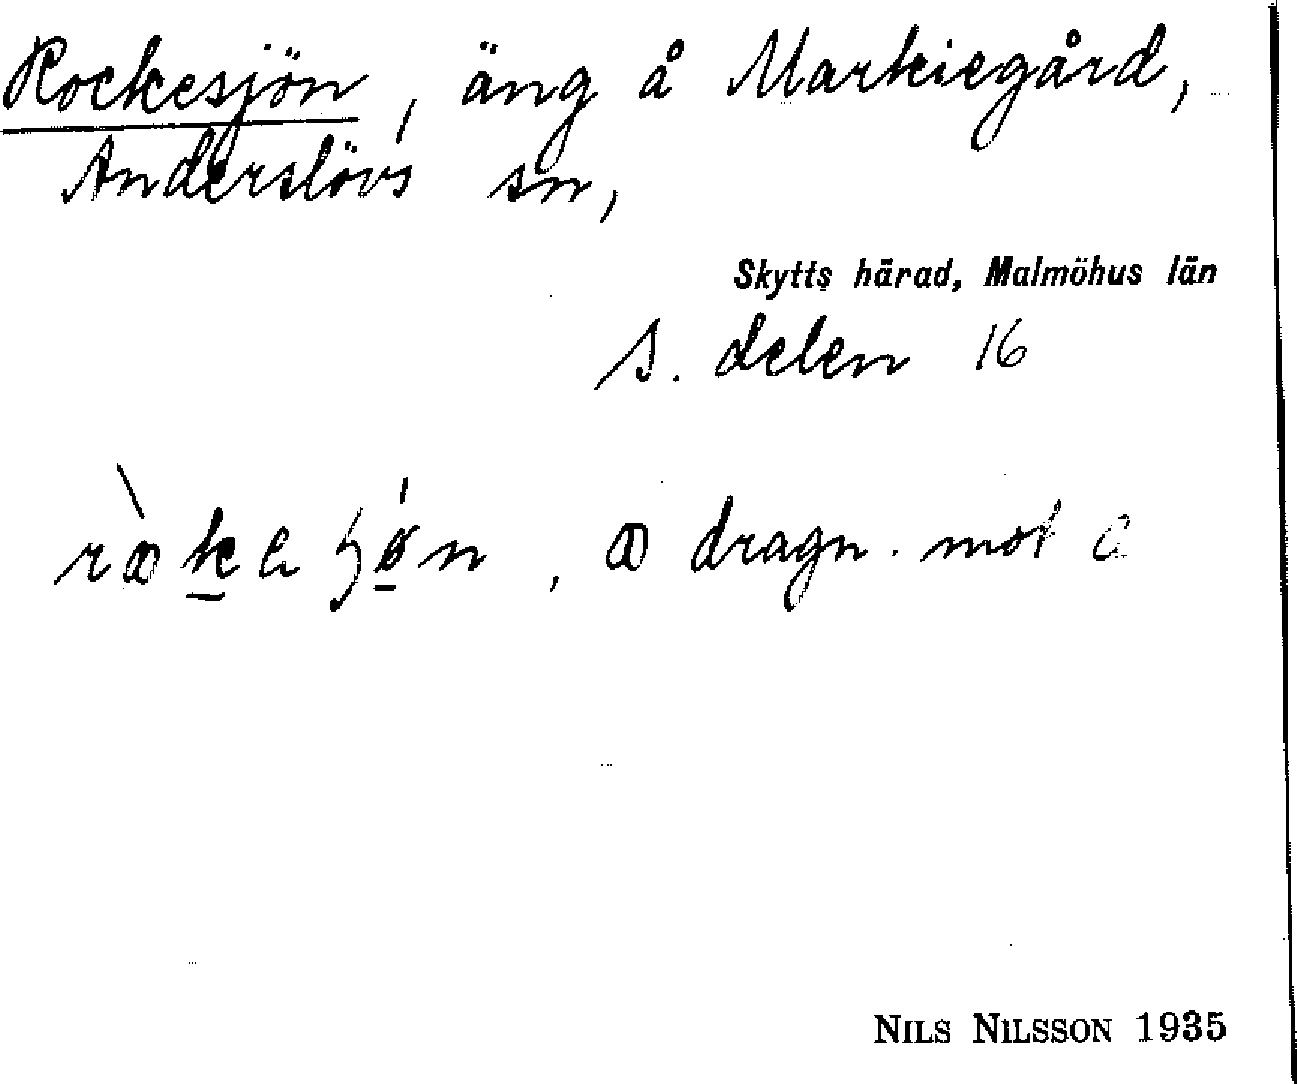 Rockesjön, äng å Markiegård,
Anderslövs sn,
Skytts härad, Malmöhus län
S. delen 16
dragn. mot
NILS NILSSON 1935